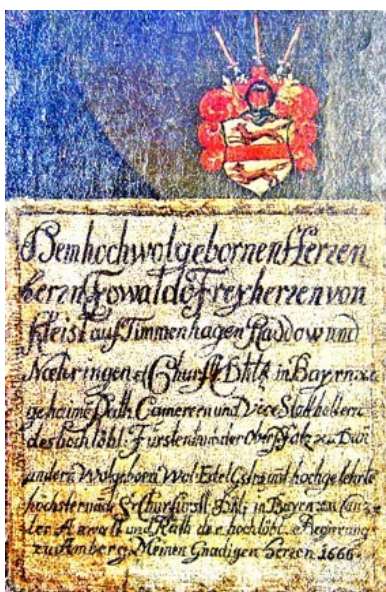 Dem hochwolgebornen Herren
herrn Ewaldo Freyherren von
Kleist auf Timmenhagen Raddow und
Nœhringen Churfl. Dhlt. in Bayrn
gehaime Rath Camerern und Vice Stathaltern
des hochlöbl. Fürstentumb der Obern Pfalz
andern Wolgeborn Wol Edel Gstr. und hochgelehrte
Churfürstl. in Bayrn
und Rath der hochlöbl. Regierung
zu Amberg. Meinen Gnädigen Herren 1666